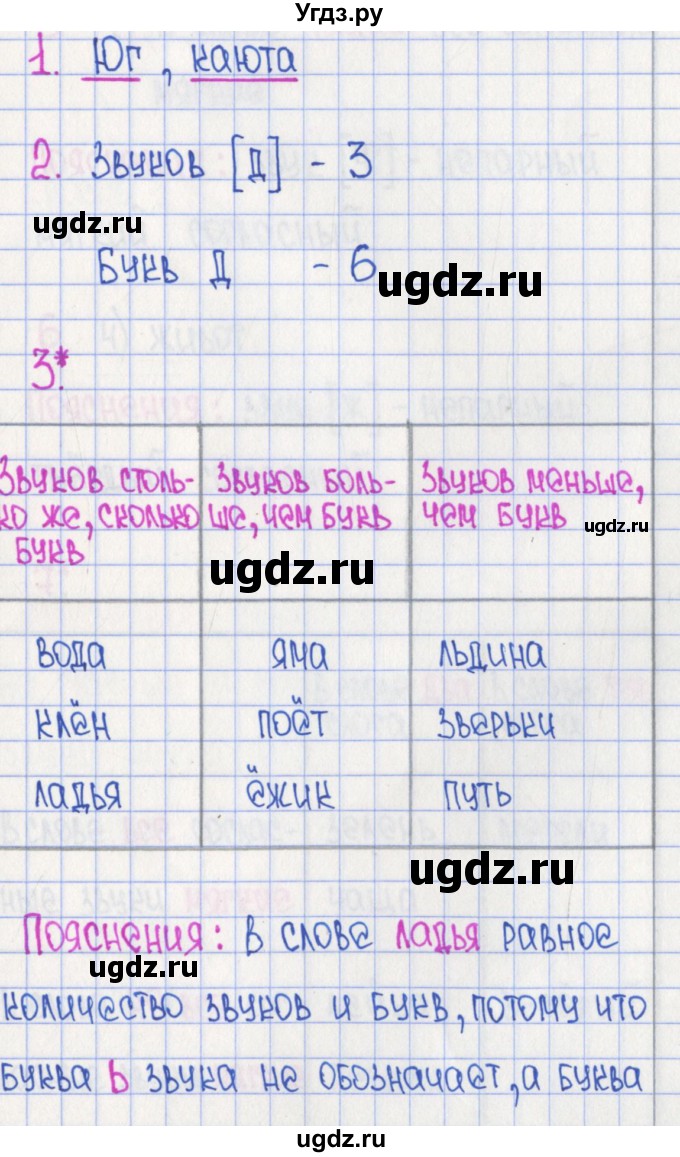 Угдз.ру
1. Юг, каюта
2. Звуков [д] - 3
ugdz.ru
Букв Д - 6
ugdz.ru
3*.
Звуков столь- Звуков боль- Звуков меньше,
ко же, сколько ше, чем букв чем букв
ugdz.ru
букв
ugdz.ru
вода яма льдина
клён поёт зверьки
ладья ёжик путь
ugdz.ru
Пояснения: в слове ладья равное
ugdz.ru
количество звуков и букв, потому что
буква ь звука не обозначает, а буква
ugdz.ru